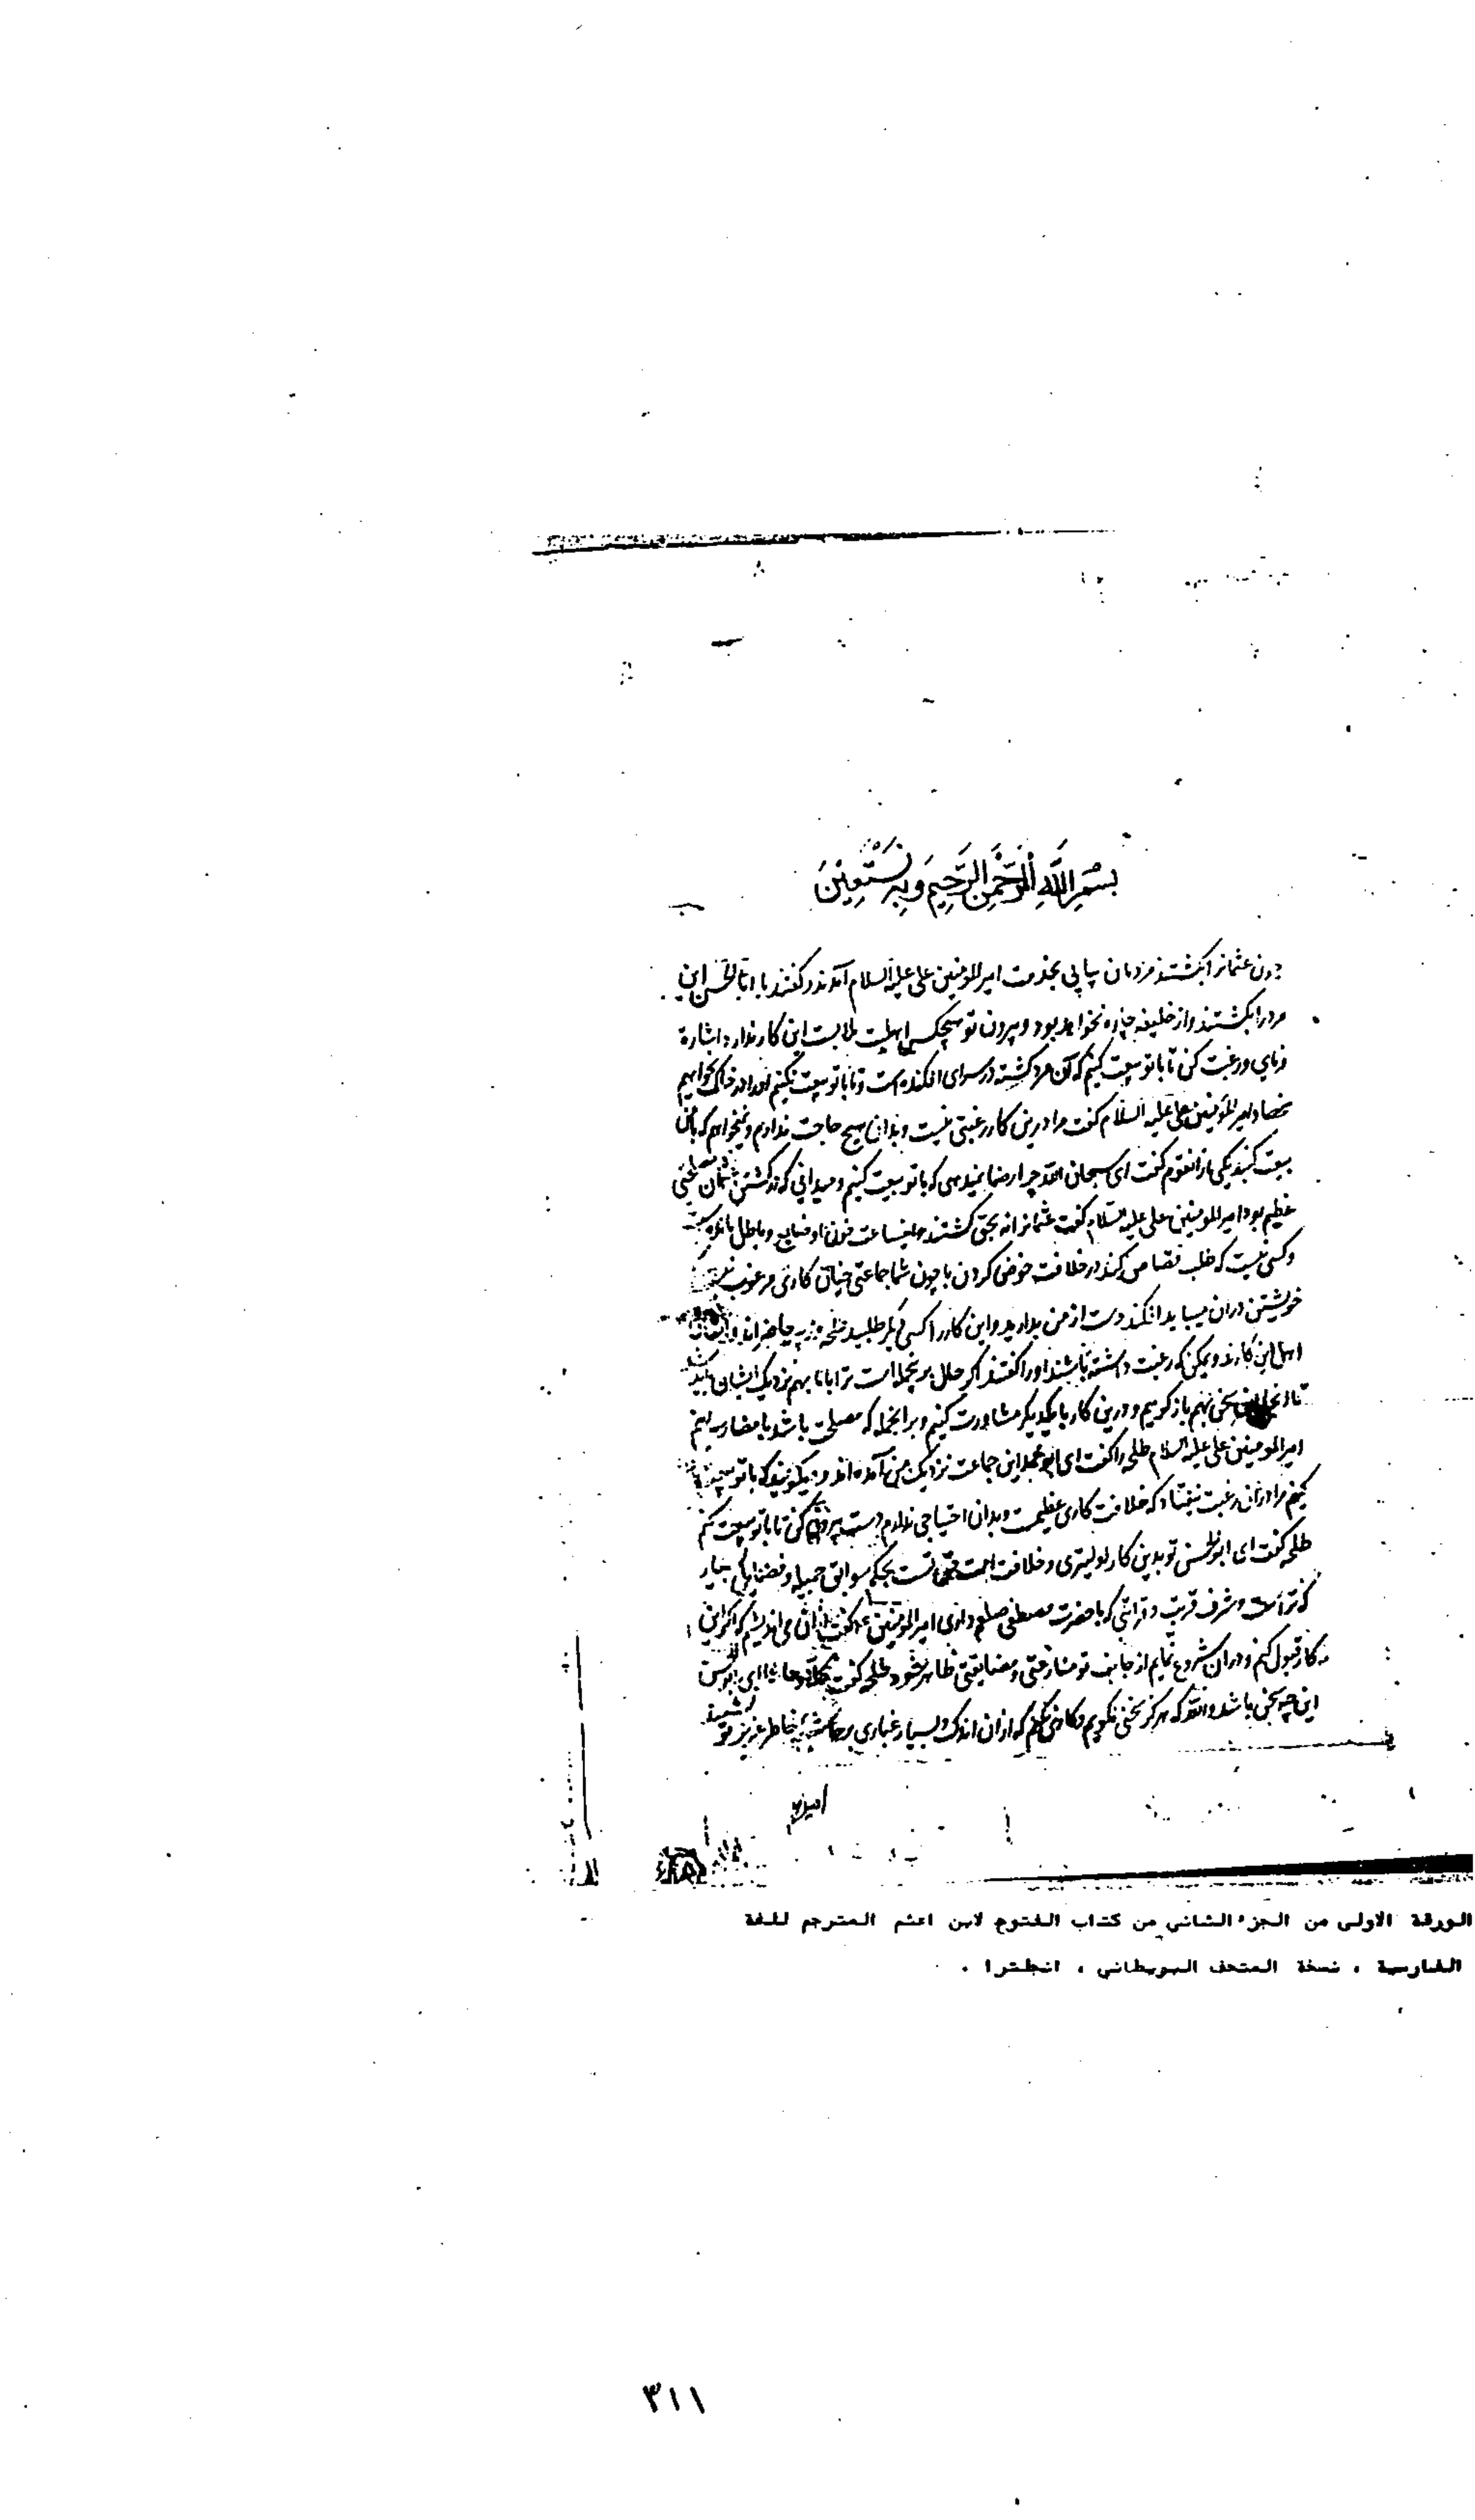 بسم الله الرحمن الرحیم وبه نستعین
چون عثمانرا بکشتند مردمان پیاپی بخدمت امیرالمومنین علی علیه السلام آمدند و گفتند یا اباالحسن این
مرد را بکشتند و از خلیفه چاره نخواهد بود و بیرون تو هیچکس اهلیت این کار ندارد اشارة
فرمای و رغبت کن تا با تو بیعت کنیم که آن مرد کشته در سرای افکنده است و تا با تو بیعت نکنیم او را در خاک نخواهیم
نهاد امیرالمؤمنین علی علیه السلام گفت مرا درین کار رغبتی نیست و بدان هیچ حاجت ندارم و نمیخواهم که با من
بیعت کنید یکی از انقوم گفت ای سبحان الله چرا رضا نمیدهی که با تو بیعت کنیم و میدانی که در کشتن عثمان
عظیم بود امیرالمومنین علی علیه السلام گفت عثمانرا نه بحق کشتند و این ساعت خون او ضایع و باطل مانده
و کسی نیست که طلب قصاص کند در خلافت خوض کردن با چون شما جماعتی چنان کاری مرغوب نیست
خویشتن دران میباید افکند دست از من بدارید و این کار را کسی دیگر طلبید طلحه و زبیر حاضراند و ایشان
اهل این کارند و یمکن که رغبت داشته باشند او را گفتند اگر حال برینجمله است ترا با ما بهم نزدیک ایشان باید شد
تا سخن بهم باز گوییم و درین کار با یکدیگر مشاورت کنیم و برانجمله که مصلحت باشد بامضا رسانیم
امیرالمومنین علی علیه السلام طلحه را گفت ای ابو محمد این جماعت نزدیک من آمده اند و میگویند که با تو بیعت
کنیم مرا دران رغبت نیفتاد که خلافت کاری عظیمست و بدان احتیاجی ندارم دست بیرون کن تا با تو بیعت کنم
طلحه گفت ای ابوالحسن تو بدین کار اولیتری و خلافت حق تست بحکم سوابق جمیله و فضایل بسیار
که تراست و شرف قربت و قرابتی که با حضرت مصطفی صلعم داری امیرالمومنین ع گفت ازان می اندیشم که اگر این
کار قبول کنم و دران شروع نمایم از جانب تو منازعتی و مضایقتی ظاهر شود طلحه گفت کلا و حاشا ای ابوالحسن
این چه سخن باشد والله که هرگز سخنی نگویم و کاری نکنم که ازان اندک و بسیار غباری بر حاشیه خاطر عزیز تو نشیند
الورقة الاولى من الجزء الثاني من كتاب الفتوح لابن اعثم المترجم للغة
الفارسية ، نسخة المتحف البريطاني ، انجلترا .
٣١١